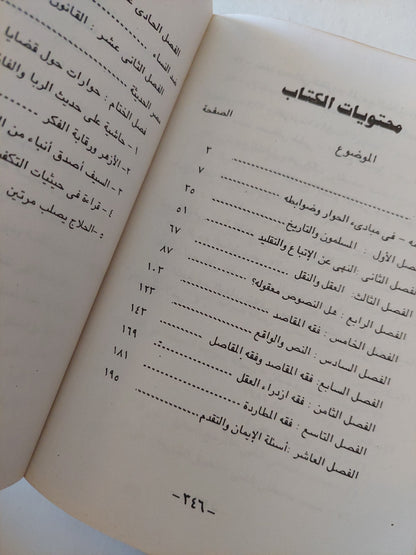 محتويات الكتاب
الموضوع الصفحة
٣
ـه - فى مبادىء الحوار وضوابطه ٧
فصل الأول : المسلمون والتاريخ ٣٥
الفصل الثانى : النهى عن الإتباع والتقليد ٥١
الفصل الثالث: العقل والنقل ٦٧
الفصل الرابع : هل النصوص معقوله؟ ٨٧
الفصل الخامس : فقه المقاصد ١٠٣
الفصل السادس : النص والواقع ١٢٣
الفصل السابع: فقه المقاصد وفقه المفاصل ١٤٣
الفصل الثامن : فقه ازدراء العقل ١٦٩
الفصل التاسع : فقه المطاردة ١٨١
الفصل العاشر :أسئلة الإيمان والتقدم ١٩٥
-٣٤٦-
الفصل الحادى عشر
ضد النساء
الفصل الثانى عشر : القانون
مصر الحديثة
فصل الختام : حوارات حول قضايا
١- حاشية على حديث الربا والفا
٢- الأزهر ورقابة الفكر
٣- السيف أصدق أنباء من ال
٤- قراءة فى حيثيات التكف
٥-الحلاج يصلب مرتين